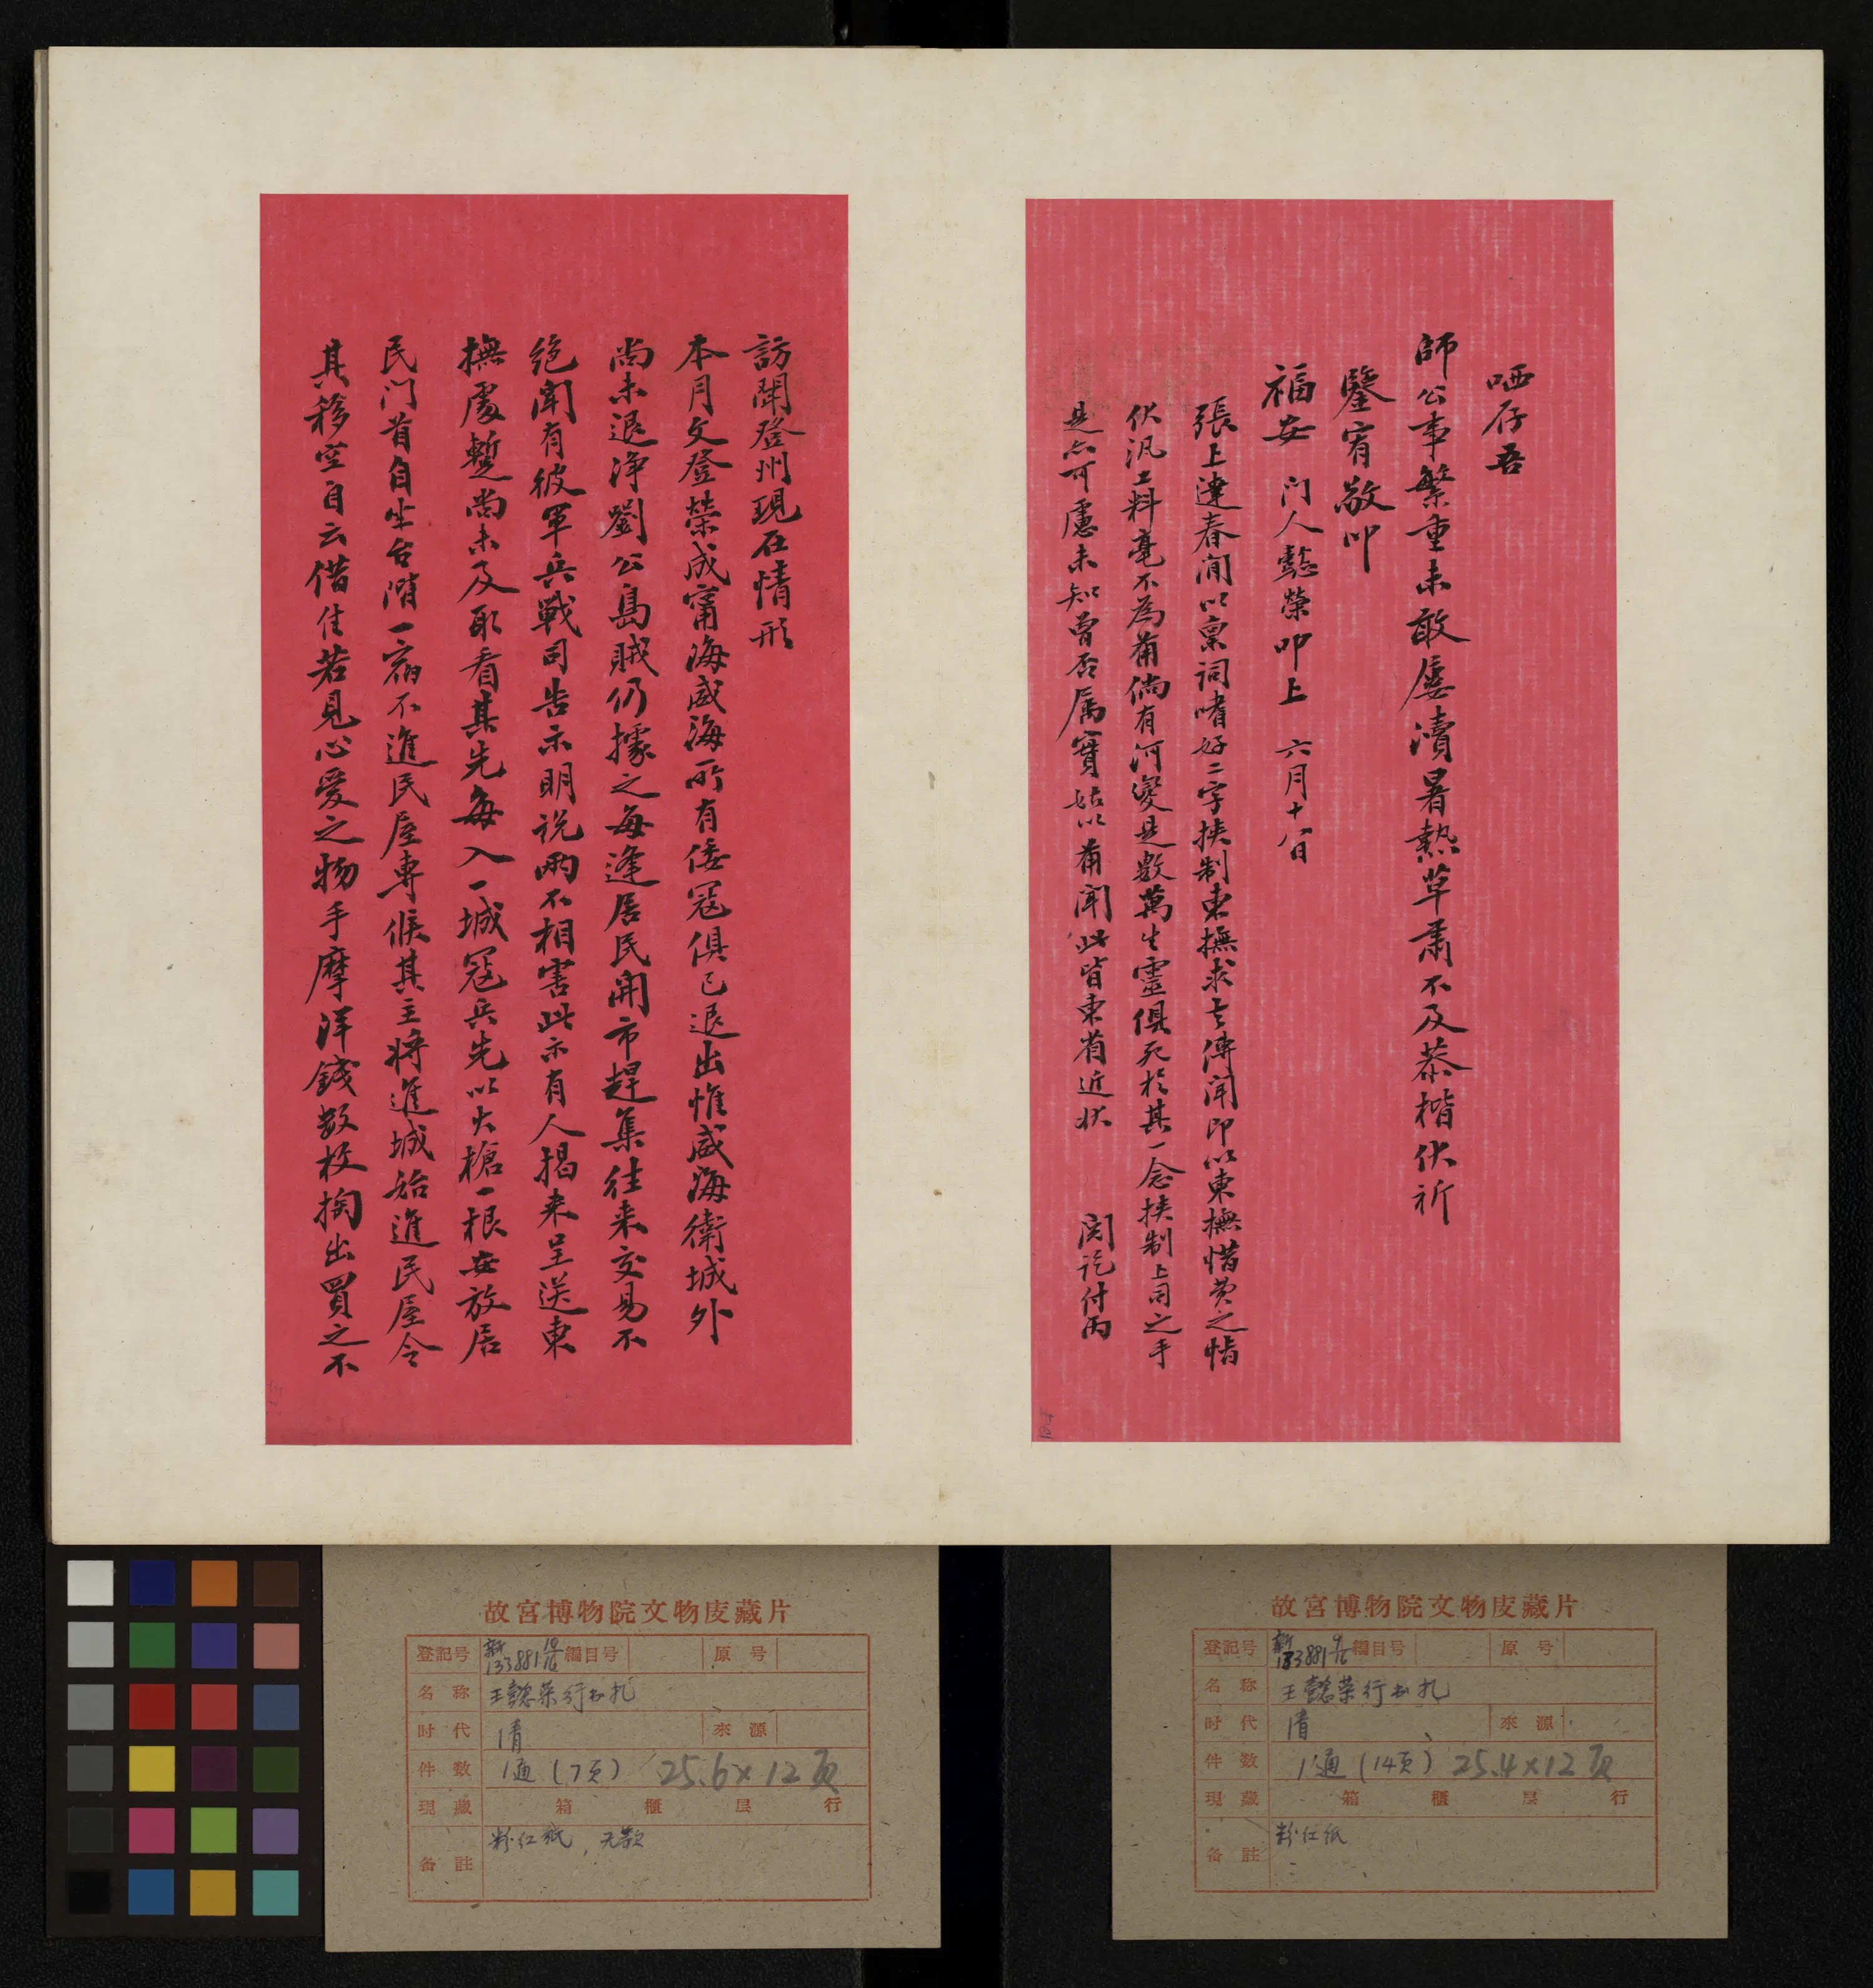 哂存吾
師公事繁重未敢屢瀆暑熱草肅不及恭楷伏祈
鑒宥敬叩
福安　门人懿榮叩上　六月十八日
張上達春间以稟詞嗜好二字挾制東撫求去傳聞即以東撫惜費之惜
伏汛工料毫不為備倘有河變是數萬生靈俱死於其一念挾制上司之手
是亦可慮未知曾否属實姑以備聞此皆東省近狀　閱訖付丙
訪聞登州現在情形
本月文登榮成甯海威海所有倭寇俱已退出惟威海衛城外
尚未退淨劉公島賊仍據之每逢居民開市趕集往来交易不
绝聞有彼軍兵戰司告示明说兩不相害此示有人揭来呈送東
撫處暫尚未及取看其先每入一城寇兵先以火槍一根安放居
民门首自坐台階一宿不進民屋專候其主將進城始進民屋令
其移空自云借住若見心愛之物手摩洋錢数枚掏出買之不
故宮博物院文物庋藏片
登記号 新133881 10/16 編目号 原号
名称 王懿荣行书札
时代 清 來源
件数 1通(7页) 25.6×12页
現藏 箱 櫃 层 行
备註 粉红纸，无款
故宮博物院文物庋藏片
登記号 新133881 9/16 編目号 原号
名称 王懿荣行书札
时代 清 來源
件数 1通(14页) 25.4×12页
現藏 箱 櫃 层 行
备註 粉红纸